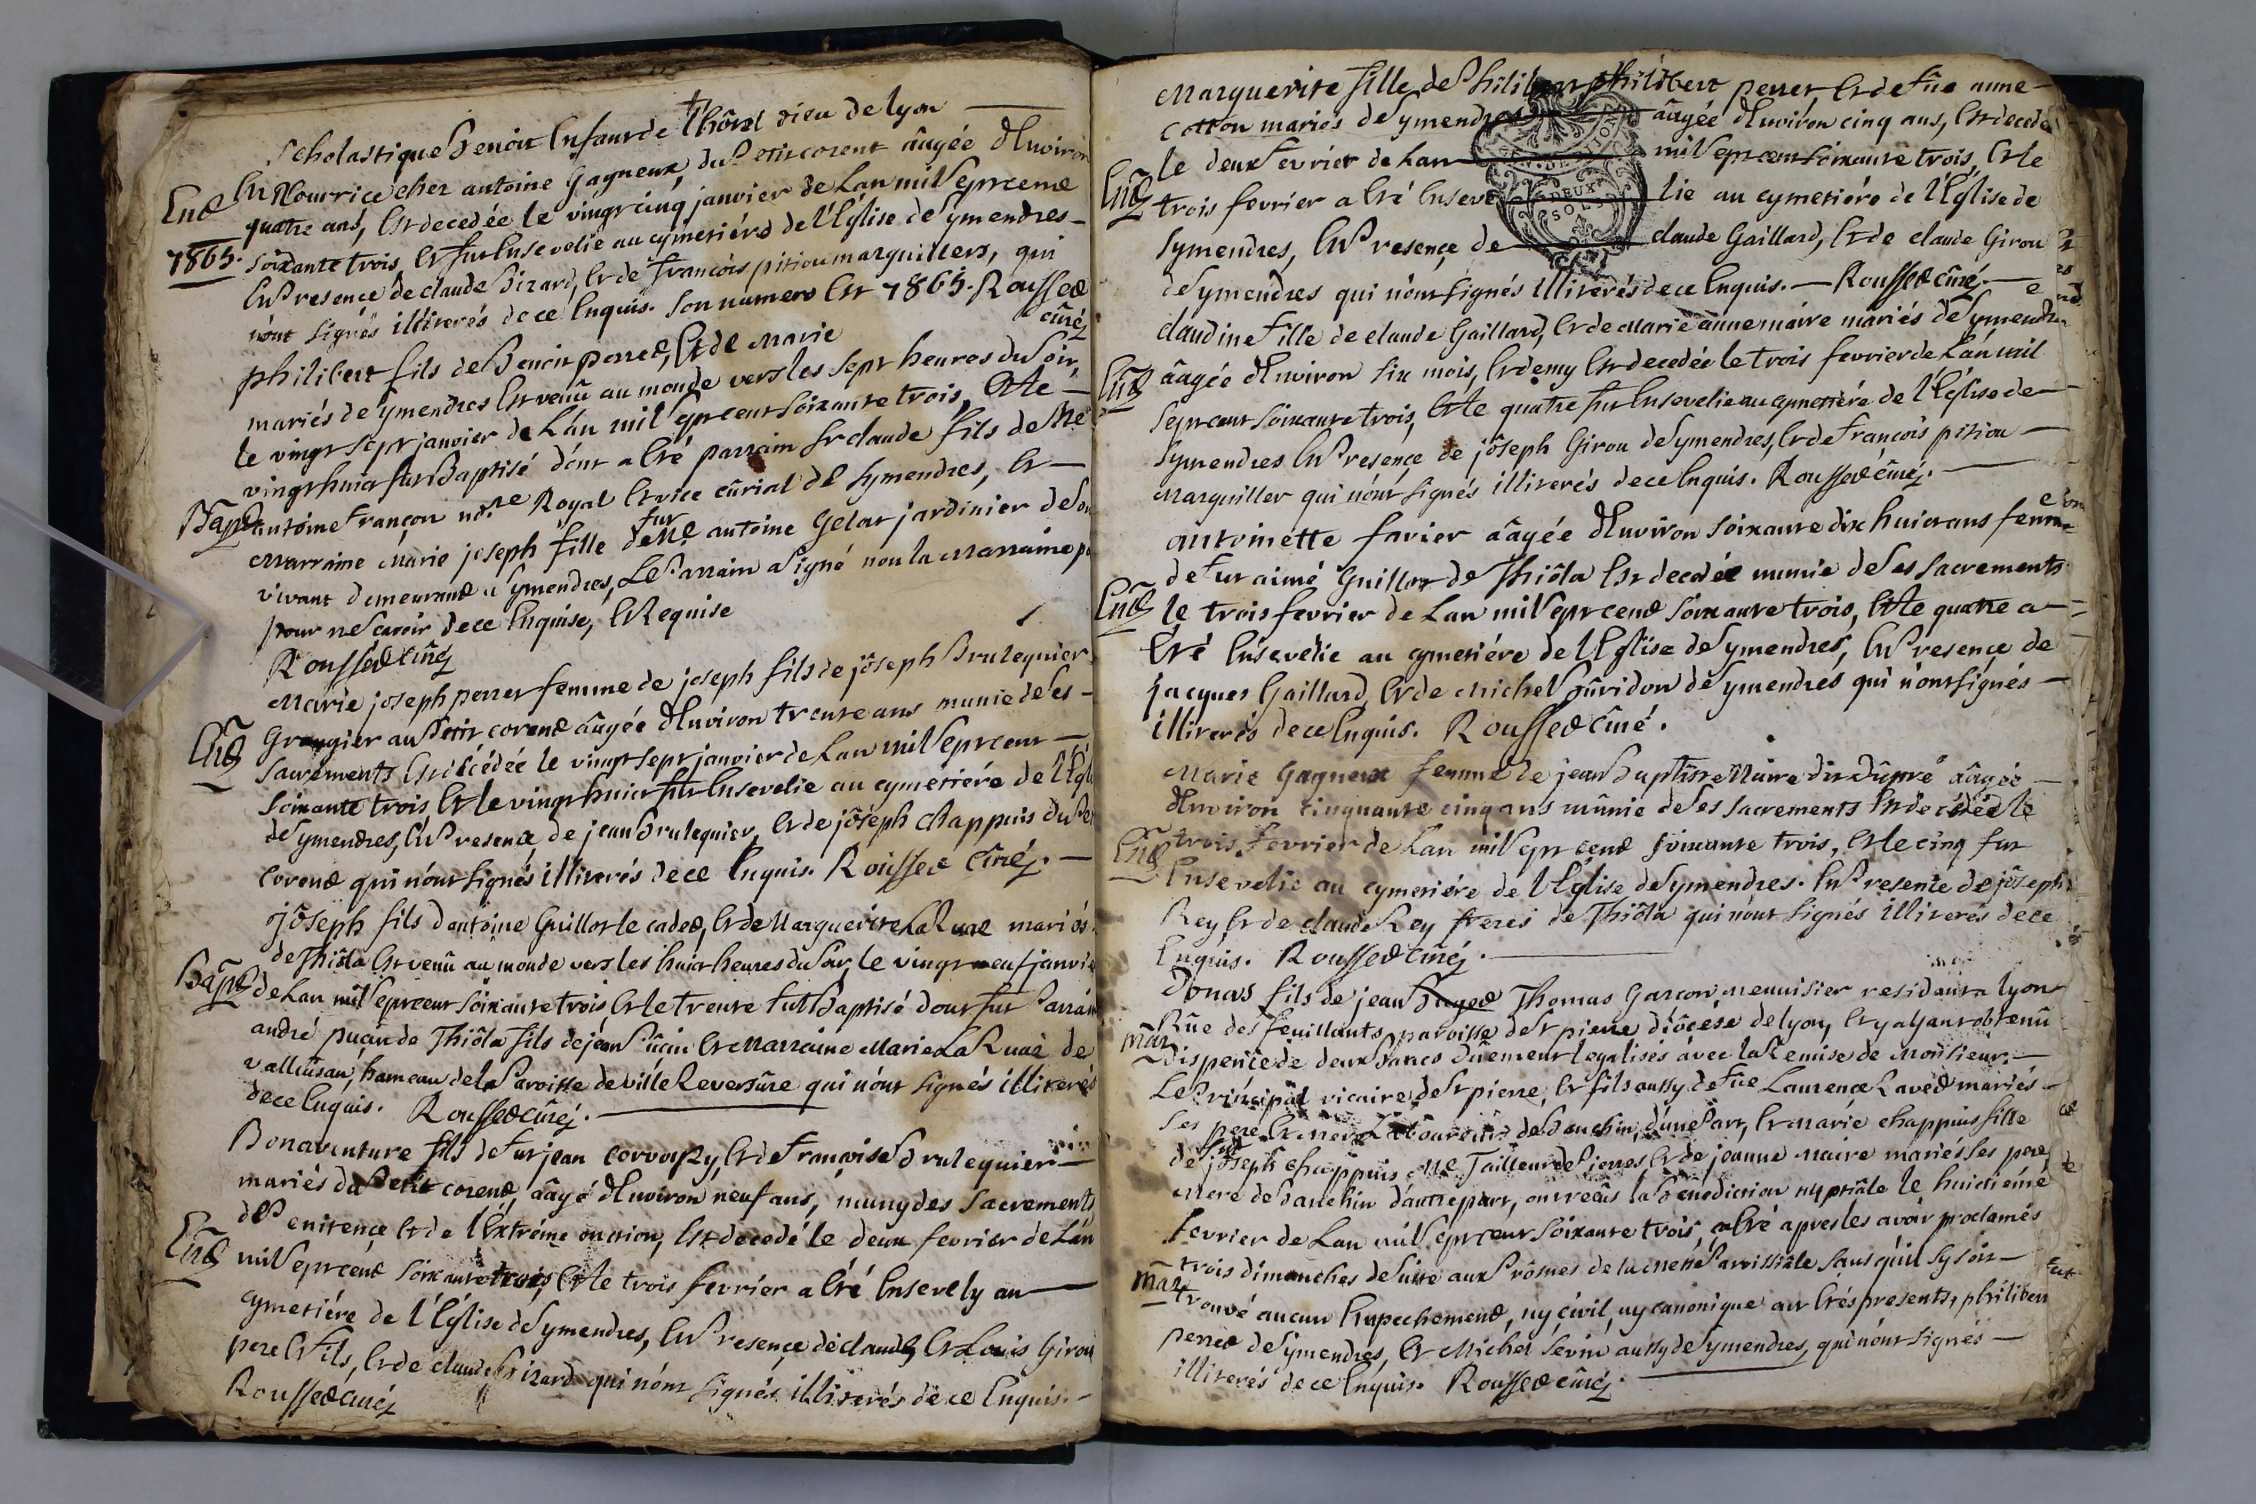 Scholastique Benoit Enfant de l'hôtel dieu de lyon
En Nourrice chez antoine Gagneux, du Petit corent âagée d'Environ
Ent
quatre ans, Est decedée le vingt cinq janvier de Lan mil Sept cent
1865.
soixante trois, Et fut Ensevelie au cymetiére de l'Eglise de Symendres
En Presence de claude Bizard, Et de francois pitiou marguillers, qui
n'ont signés illiterés de ce Enquis. Son numero Est 1865. Rousset
curé
philibert fils de Benoit perret, Et de Marie
mariés de Symendres Est venû au monde vers les sept heures du Soir,
le vingt sept janvier de Lan mil Sept cent Soixante trois, Et le
vingt huit fut Baptisé dont a Eté parrain Sr claude fils de Me
Bapt
antoine françon not.re Royal Et vice cûrial de Symendres, Et
Marraine Marie joseph fille de fut Me antoine Gelat jardinier de Son
vivant demeurant a Symendres, Le Parrain a Signé non la Marraine
pour ne Scavoir de ce Enquise, Et Requise
Rousset curé
Marie joseph perret femme de joseph fils de jôseph Brulequier
Grangier au Petit corent âagée d'Environ trente ans munie de Ses
Ent
Sacrements Est décédée le vingt sept janvier de Lan mil Sept cent
Soixante trois Et le vingt huit fut Ensevelie au cymetiére de l'Egl
de Symendres, En Presence de jean Brulequier, Et de jôseph chappuis du Pet
Corent qui n'ont Signés illiterés de ce Enquis. Rousset Curé.
jôseph fils d'antoine Guillot le cadet, Et de Marguerite La Ruaz mariés
de Thiôla Est venû au monde vers les huit heures du Soir, le vingt neuf janvier
Bapt
de Lan mil Sept cent Soixante trois Et le trente fut Baptisé dont fut Parrain
andré puin de Thiôla fils de jean Puin Et Marraine Marie La Ruaz de
vallûsan, hameau de la Paroisse de ville Reversûre qui n'ont Signés illiterés
de ce Enquis. Rousset curé.
Bonaventure fils de fut jean Corvouzy, Et de Francoise Brulequier
mariés du Petit corent, âagé d'Environ neuf ans, muny des Sacrements
de Penitence Et de l'Extréme onction, Est decedé le deux fevrier de Lan
Ent
mil Sept cent Soixante trois, Et le trois fevrier a Eté Ensevely au
cymetiére de l'Eglise de Symendres, En Presence de claude, Et Louis Girou
pere Et fils, Et de claude Bizard qui n'ont Signés illiterés de ce Enquis.
Rousset curé
Marguerite fille de Philibert philibert perret Et de fûe anne
Cotton mariés de Symendres âagée d'Environ cinq ans, Est decedée
le deux fevrier de Lan mil Sept cent Soixante trois, Et le
Ent
trois fevrier a Eté Enseve lie au cymetiére de l'Eglise de
Symendres, En Presence de claude Gaillard, Et de claude Girou
de Symendres qui n'ont Signés illiterés de ce Enquis. Rousset curé.
claudine fille de claude Gaillard, Et de Marie anne maire mariés de Symendres
âagée d'Environ Six mois, Et demy Est decedée le trois fevrier de Lan mil
Ent
Sept cent Soixante trois, Et le quatre fut Ensevelie au cymetiére de l'Eglise de
Symendres En Presence de jôseph Girou de Symendres, Et de Francois pitiou
Marguiller qui n'ont Signés illiterés de ce Enquis. Rousset curé.
antoinette favier âagée d'Environ Soixante dix huit ans femme
de fut aimé Guillot de Thiôla Est decedée munie de Ses Sacrements
Ent
le trois fevrier de Lan mil Sept cent Soixante trois, Et le quatre a
Eté Ensevelie au cymetiére de l'Eglise de Symendres, En Presence de
jacques Gaillard, Et de Michel Gûridon de Symendres qui n'ont Signés
illiterés de ce Enquis. Rousset curé.
Marie Gagneux femme de jean Baptiste Maire dit Dupré âagée
d'Environ Cinquante cinq ans mûnie de Ses Sacrements Est decédée le
Ent
trois Fevrier de Lan mil Sept cent Soixante trois, Et le cinq fut
Ensevelie au cymetiére de l'Eglise de Symendres. En Presence de jôseph
Rey, Et de claude Rey freres de Thiôla qui n'ont Signés illiterés de ce
Enquis. Rousset curé.
Donas fils de jean Thomas Garcon menuisier residant a lyon
Rûe des feuillants, paroisse de St pierre diôcése de lyon, Et y aÿant obtenû
Mar
dispence de deux bancs dûement legalisés avec la Remise de Monsieur
Le Principal vicaire de St pierre, Et fils aussy de fûe Laurence Ravet mariés
Ses pere, Et Mere de Banchin, d'une Part, Et Marie chappuis fille
de jôseph chappuis Me Tailleur de Pierres Et de jeanne Maire mariés Ses pere,
Mere de Banchin d'autre part, ont reçûs la Benediction nuptiale le huitiéme
fevrier de Lan mil Sept cent Soixante trois, a Eté apres les avoir proclamés
trois dimanches de Suite aux Prônes de la messe Paroissiale Sans qu'il Sy Soit
Mar
trouvé aucun Empechement, ny civil, ny canonique ont Etés presents, philibert
perret de Symendres, Et Michel Sévin aussy de Symendres, qui n'ont Signés
illiterés de ce Enquis. Rousset curé.